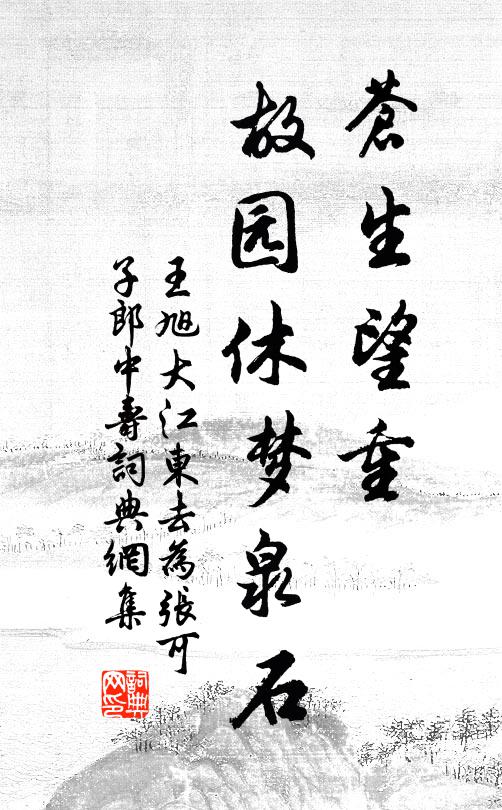 蒼生望重
故园休梦泉石
王旭大江東去為張可
子郎中壽詞典網集
詞典
网印